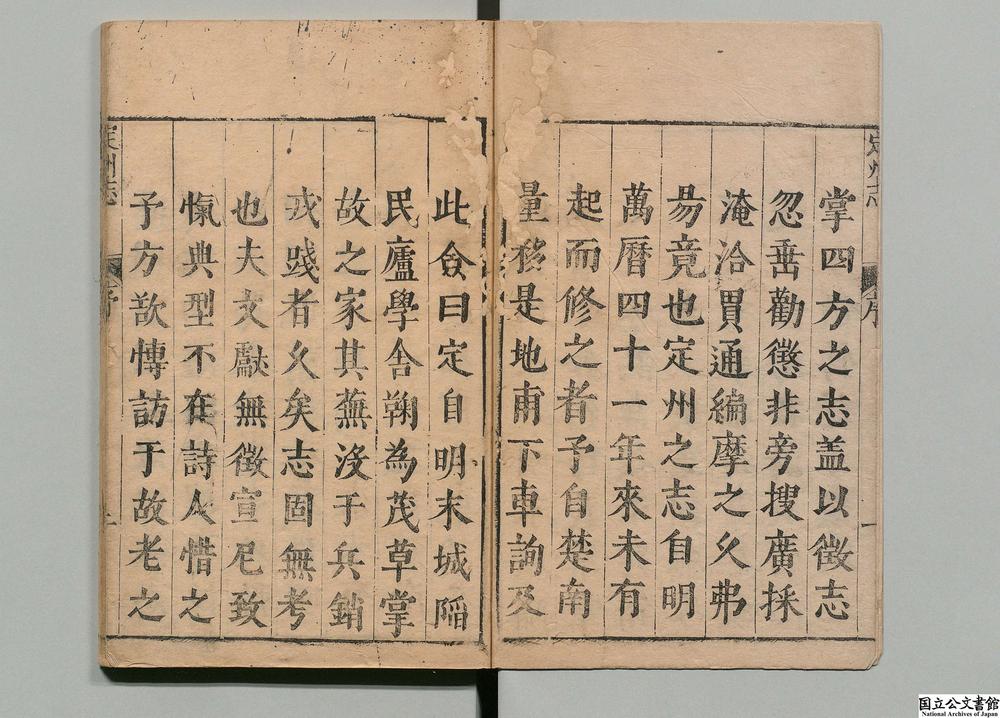 掌四方之志盖以徵志
忽畨勸懲非旁搜廣採
淹洽買通編摩之久弗
昜竟也定州之志自明
萬曆四十一年來未有
起而修之者予自楚南
量移是地甫下車詢及
此僉曰定自明末城陷
民廬學舍鞠為茂草掌
故之家其蕪没于兵銷
戎踐者久矣志固無考
也夫文獻無徵宣尼致
愾典型不在詩人惜之
予方歆博訪于故老之
定州志
序
一
国立公文書館
National Archives of Japan